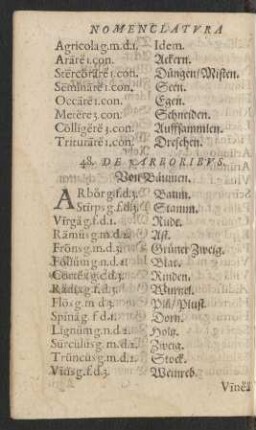 NOMENCLATVRA
Agricola g.m.d.1. Idem.
Arāre 1.con. Ackern.
Stercŏrāre 1.con. Düngen/Misten.
Sēmināre 1.con. Seen.
Occāre 1.con. Egen.
Metĕre 3.con. Schneiden.
Collĭgĕre 3.con. Auffsammlen.
Triturāre 1.con. Dreschen.
48. DE ARBORIBVS.
Von Bäumen.
ARbŏr g.f.d.3. Baum.
Stirps g.f.d.3. Stamm.
Virgă g.f.d.1. Rute.
Rāmŭs g.m.d.2. Ast.
Frōns g.m.d.3. Grüner Zweig.
Fŏlĭum g.n.d.2. Blat.
Cortex g.d.3. Rinden.
Rādix g.f.d.3. Wurtzel.
Flōs g.m d.3. Plü/Plust.
Spīnă g.f.d.1. Dorn.
Lignum g.n.d.2. Holtz.
Surcŭlŭs g.m.d.2. Zweig.
Trŭncŭs g.m.d.2. Stock.
Vītĭs g.f.d.3. Weinreb.
Vīneă